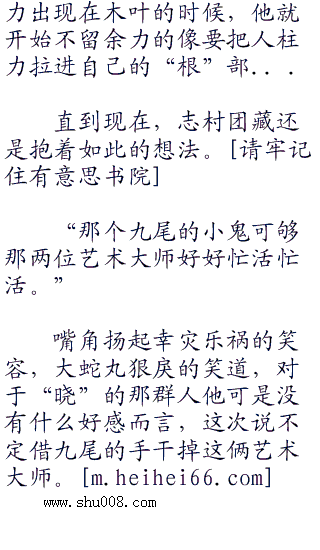 力出现在木叶的时候，他就
开始不留余力的像要把人柱
力拉进自己的“根”部....
直到现在，志村团藏还
是抱着如此的想法。[请牢记
住有意思书院]
“那个九尾的小鬼可够
那两位艺术大师好好忙活忙
活。”
嘴角扬起幸灾乐祸的笑
容，大蛇丸狠戾的笑道，对
于“晓”的那群人他可是没
有什么好感而言，这次说不
定借九尾的手干掉这俩艺术
大师。[m.heihei66.com]
www.shu008.com